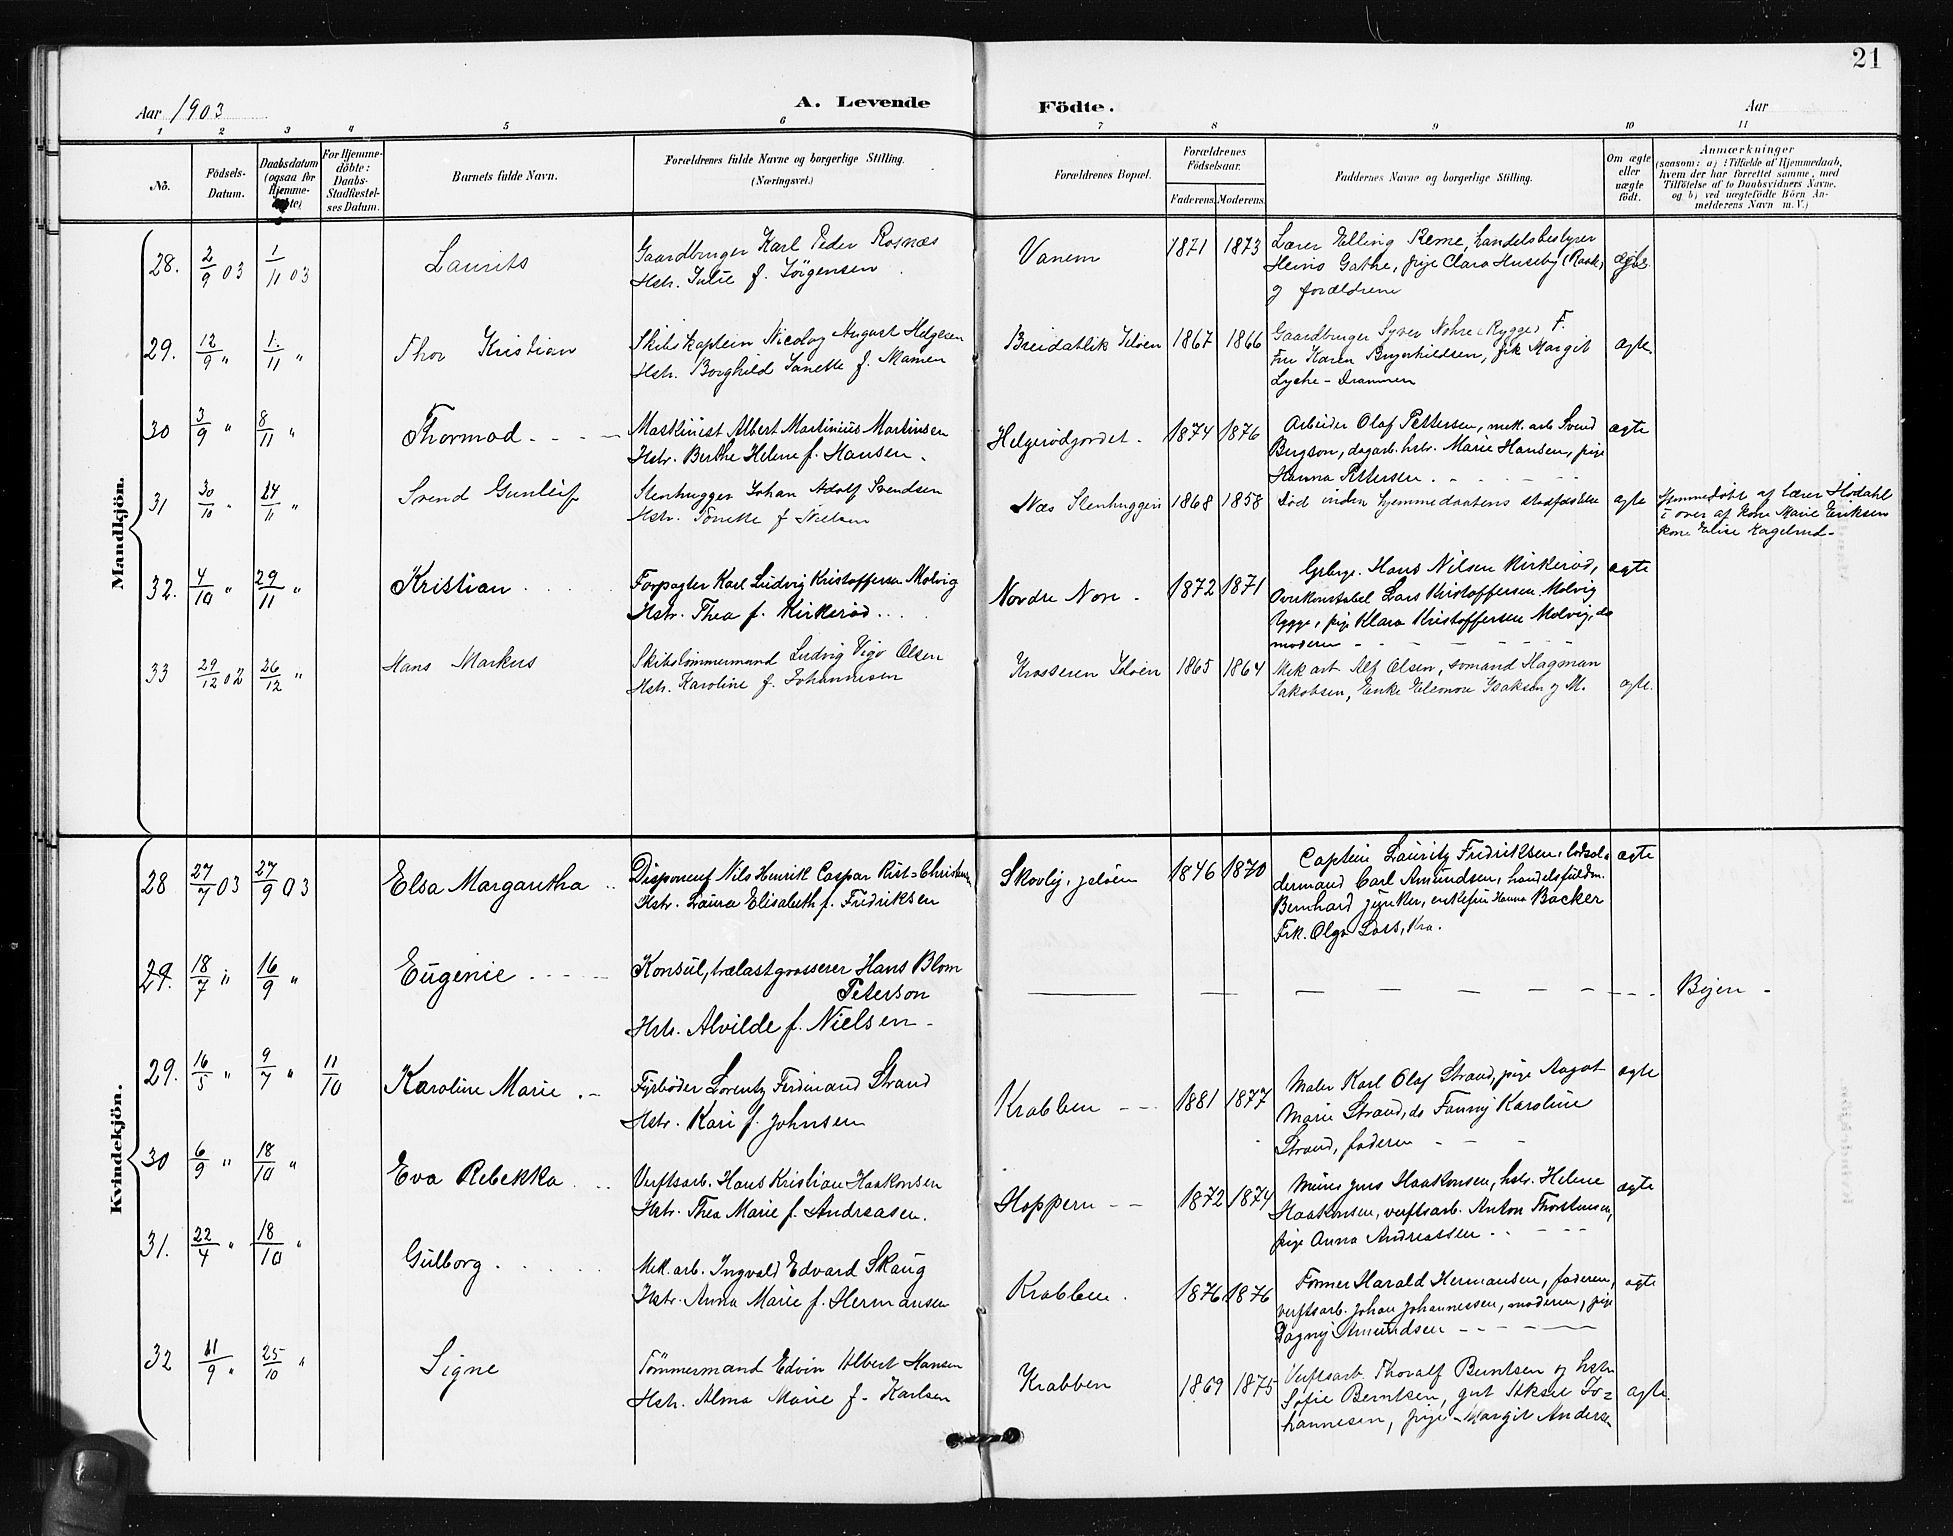 21
Aar 1903
A. Levende
Födte.
Aar
1 2 3 4 5 6 7 8 9 10 11
No.
Födsels-
Datum.
Daabsdatum
(ogsaa for
Hjemme-
döbte)
For Hjemme-
döbte:
Daabs-
Stadfæstel-
ses Datum.
Barnets fulde Navn.
Forældrenes fulde Navne og borgerlige Stilling.
(Næringsvei.)
Forældrenes Bopæl.
Forældrenes
Födselsaar.
Faderens. Moderens.
Faddernes Navne og borgerlige Stilling.
Om ægte
eller
uægte
födt.
Anmærkninger
(saasom: a) i Tilfælde af Hjemmedaab,
hvem der har forrettet samme, med
Tilföielse af to Daabsvidners Navne,
og b) ved uægtefödte Börn An-
melderens Navn m. V.)
Mandkjön.
28. 2/9 03 1/11 03 Laurits
Gaardbruger Karl Peder Rosnæs
Hstr. Julie f. Jörgensen
Vanem 1871 1873
Lærer Elling Reme, handelsbestyrer
Heins Gathe, pige Clara Huseby (Raade)
og forældrene
29. 12/9 " 1./11 " Thor Kristian
Skibskaptein Nicolay August Helgesen
Hstr. Borghild Janette f. Mamen
Breidablik Jeløen 1867 1866
Gaardbruger Syver Nøhre (Rygge) F.
Fru Karen Brynhildsen, frk Margit
Lyche - Drammen
ægte
30 3/9 " 8/11 " Thormod
Maskinist Albert Martinius Martinsen
Hstr. Berthe Helene f. Hansen.
Helgerödjordet. 1874 1876
Arbeider Olaf Pettersen, mek. arb Svend
Bergson, dagarb. hstr. Marie Hansen, pige
Hanna Pettersen
ægte
31 30/10 " 24/11 " Svend Gunleif
Stenhugger Johan Adolf Svendsen
Hstr. Tomette f Nielsen
Næs Stenhuggeri 1868 1858
Død inden hjemmedaabens stadfæstelse
ægte
Hjemmedøbt af lærer Høidahl
i over af kone Marie Eriksen
kone Elise Hagelund-
32. 4/10 " 29/11 " Kristian
Forpagter Karl Ludvig Kristoffersen Molvig
Hstr. Thea f. Kirkeröd
Nordre Nore. 1872 1871
Grbrgr. Hans Nilsen Kirkeröd,
Overkonstabel Lars Kristoffersen Molvig
Rygge, pige Klara Kristoffersen Molvig, do
moderen
ægte
33 29/12 02 26/12 " Hans Markus
Skibstömmermand Ludvig Vigo Olsen
Hstr. Karoline f. Johannesen
Krosseren Jeløen 1865 1864
Mek arb Alf Olsen, sømand Hagman
Jakobsen, Enke Eleonore Isaksen og M.
ægte.
Kvindekjön.
28 27/7 03 27/9 03 Elsa Margaretha
Disponent Nils Henrik Caspar Rist-Christensen
Hstr. Laura Elisabeth f. Fridriksen
Skovly, jeløen 1846 1870
Captein Lauritz Fredriksen, lodsol-
dermand Carl Amundsen, handelsfuldm.
Bernhard Junker, enkefru Hanna Backer
Frk. Olga Loss, Kra.
ægte
29. 18/7 " 16/9 " Eugenie
Konsul, trælastgrosserer Hans Blom
Peterson
Hstr. Alvilde f. Nielsen
Byen
29. 16/5 " 9/7 " 11/10 Karoline Marie
Fyrböder Lorentz Ferdinand Strand
Hstr. Kari f. Johnsen
Krabben 1881 1877
Maler Karl Olaf Strand, pige Aagot
Marie Strand, do Fanny Karoline
Strand, faderen
ægte
30 6/9 " 18/10 " Eva Rebekka
Verftsarb. Hans Kristian Haakonsen
Hstr. Thea Marie f. Andreasen.
Hoppern 1872 1874
Jens Haakonsen, hstr. Helene
Haakonsen, verftsarb. Anton Thorstensen,
pige Anna Andreassen
ægte
31. 22/4 " 18/10 " Gulborg
Mek. arb. Ingvald Edvard Skaug
Hstr. Anna Marie f. Hermansen
Krabben. 1876 1876
Former Harald Hermansen, faderen,
verftsarb. Johan Johannessen, moderen, pige
Dagny Amundsen
ægte
32 11/9 " 25/10 " Signe
Tömmermand Edvin Albert Hansen
Hstr. Alma Marie f. Karlsen
Krabben 1869 1875
Verftsarb. Thoralf Berntsen og hstr
Sofie Berntsen, gut Aksel Jo-
hannesen, pige Margit Andersen
ægte.